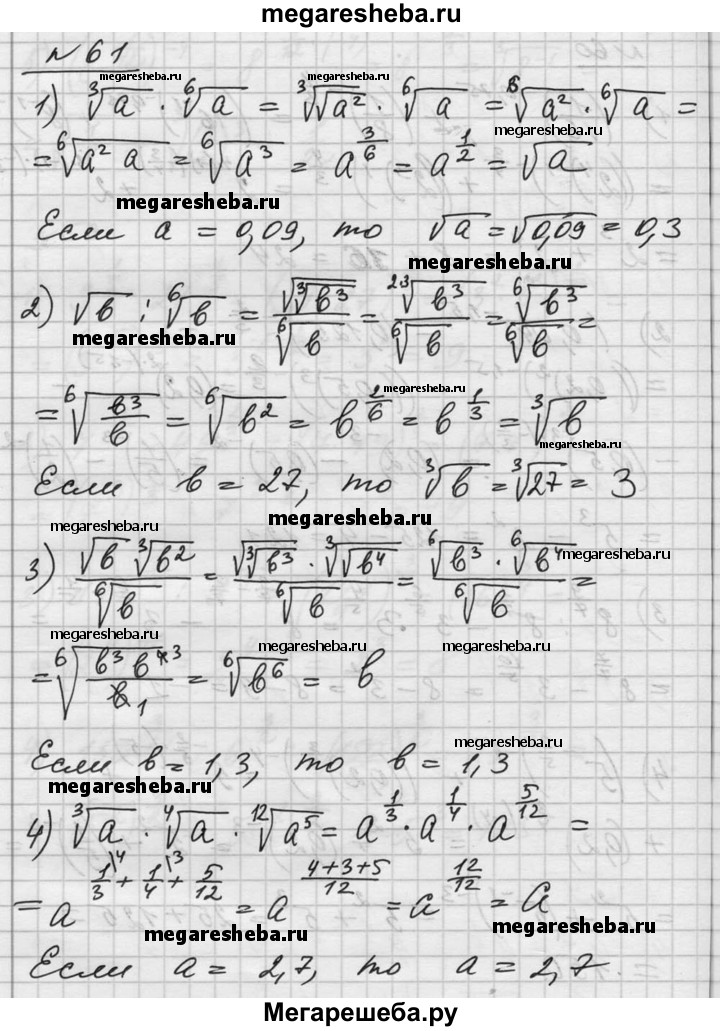 megaresheba.ru
№ 61
megaresheba.ru
1) ∛a · ⁶√a = ∛√a² · ⁶√a = ⁶√a² · ⁶√a =
megaresheba.ru
= ⁶√(a² a) = ⁶√a³ = a^(3/6) = a^(1/2) = √a
megaresheba.ru
Если a = 0,09, то √a = √0,09 = 0,3
megaresheba.ru
2) √b : ⁶√b = √∛b³ / ⁶√b = ²·³√b³ / ⁶√b = ⁶√b³ / ⁶√b =
megaresheba.ru
megaresheba.ru
= ⁶√(b³/b) = ⁶√b² = b^(2/6) = b^(1/3) = ∛b
megaresheba.ru
Если b = 27, то ∛b = ∛27 = 3
megaresheba.ru
megaresheba.ru
3) √b ∛b² / ⁶√b = √∛b³ · ∛√b⁴ / ⁶√b = ⁶√b³ · ⁶√b⁴ / ⁶√b =
megaresheba.ru
megaresheba.ru megaresheba.ru megaresheba.ru
= ⁶√(b³ b⁴ ³ / b 1) = ⁶√b⁶ = b
megaresheba.ru
Если b = 1,3, то b = 1,3
megaresheba.ru
4) ∛a · ⁴√a · ¹²√a⁵ = a^(1/3) · a^(1/4) · a^(5/12) =
= a^(1/3\4 + 1/4\3 + 5/12) = a^((4+3+5)/12) = a^(12/12) = a
megaresheba.ru megaresheba.ru
Если a = 2,7, то a = 2,7
Мегарешеба.ру